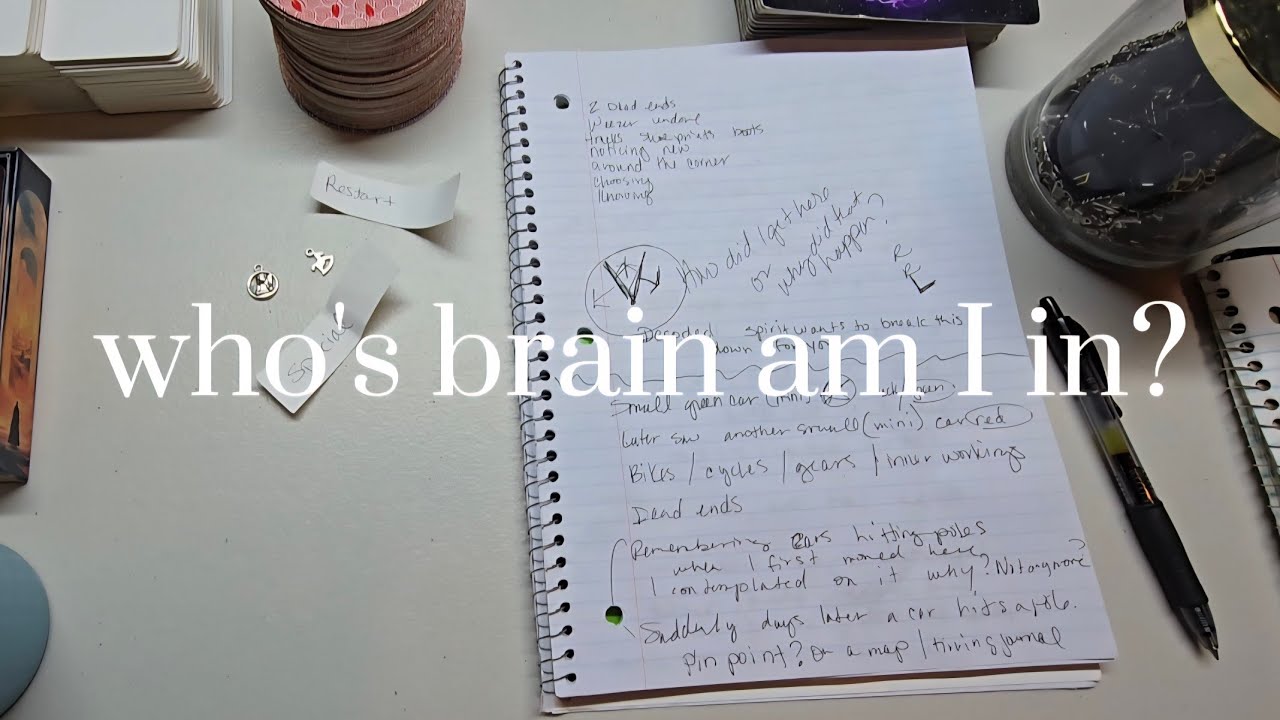 2 Dead ends
Weezer undone
tracks shoeprints boots
noticing new
around the corner
choosing
knowing
Restart
How did I get here
or why did that
happen?
R
R
L
VW
Decoded spirit wants to break this
down for you
who's brain am I in?
Social
Small green car (mini) green
Later saw another small (mini) car red
Bikes / cycles / gears / inner workings
Dead ends
Remembering cars hitting poles
when I first moved here
I contemplated on it why? Not anymore?
Suddenly days later a car hits a pole.
Pin point? on a map / timing journal